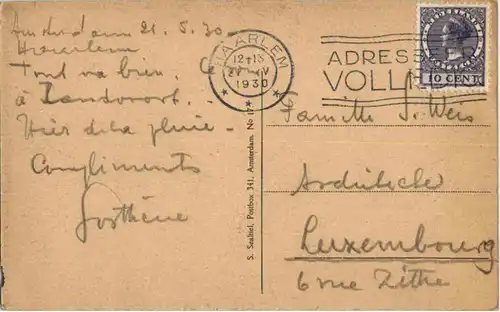 Amsterdam 21. 5. 30
Haarlem
Tout va bien.
à Zandvoort.
Hier de la pluie.
Compliments
Sosthène
HAARLEM
1930
ADRES
VOLL
NEDERLAND
10 CENT
S. Sealtiel, Postbox 341, Amsterdam. No 17
Famille S. Weis
Architecte
Luxembourg
6 rue Zithe